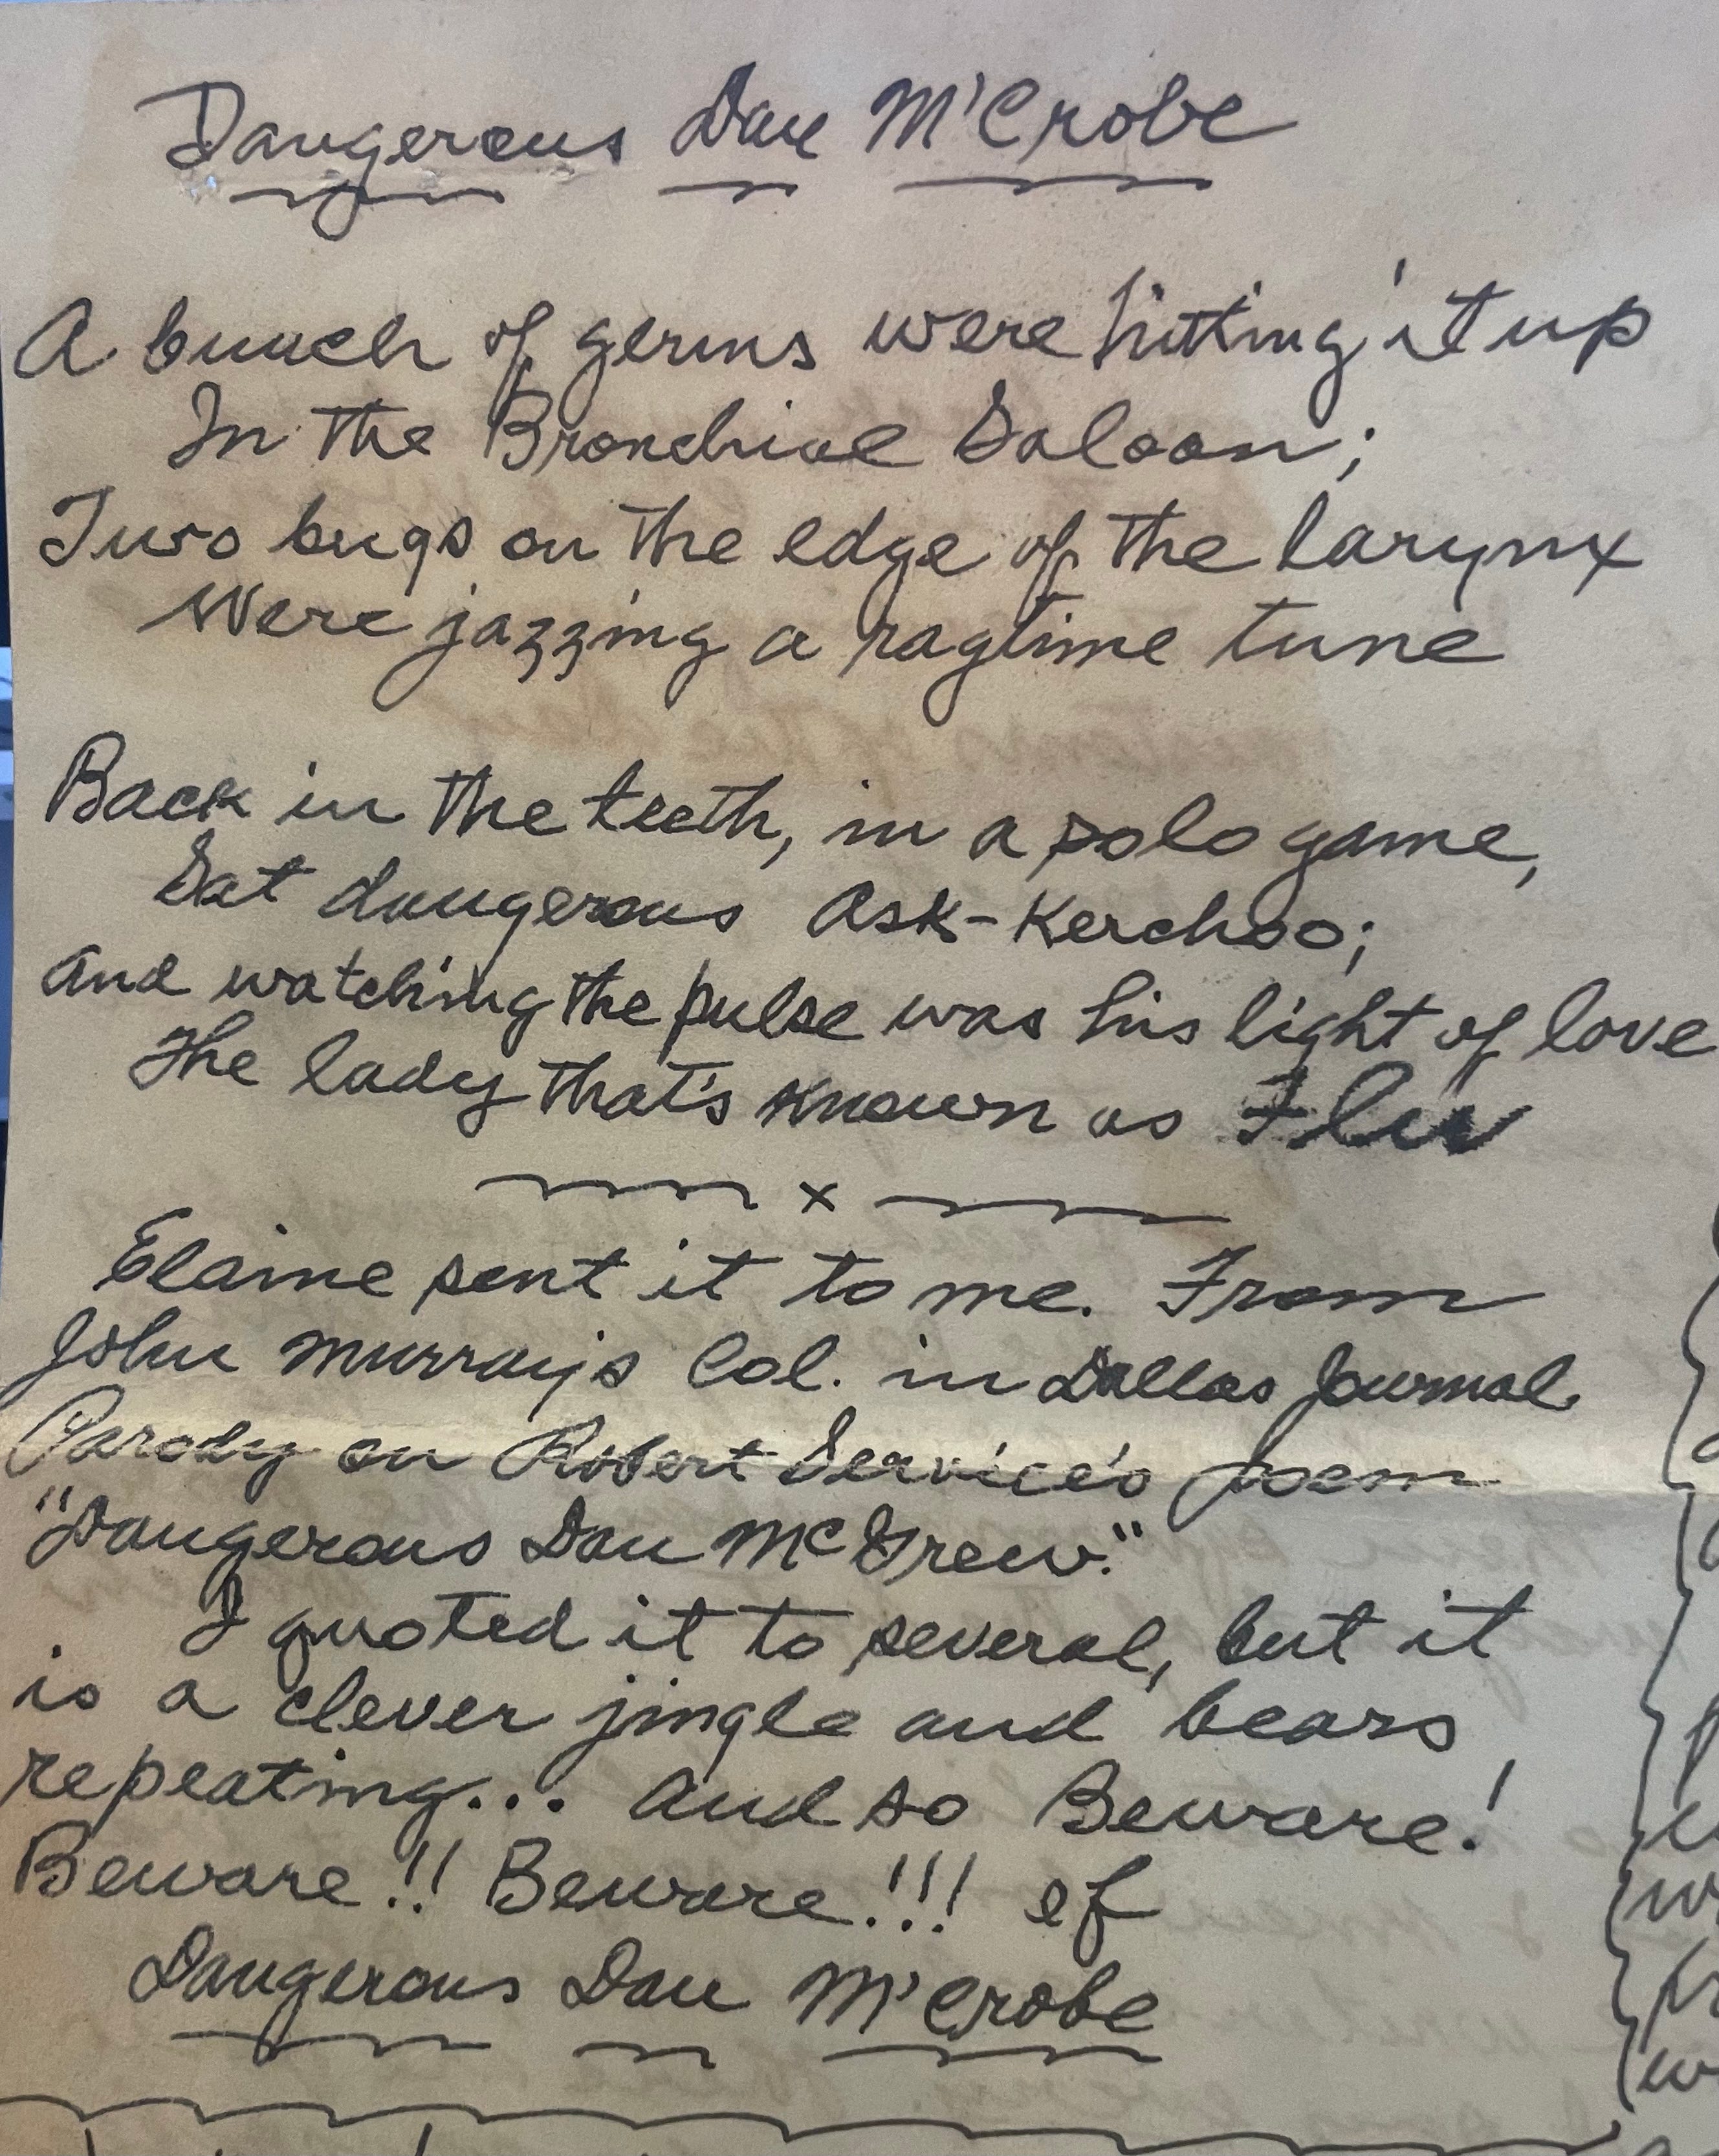 Dangerous Dan M'Crobe
A bunch of germs were hitting it up
In the Bronchial Saloon;
Two bugs on the edge of the larynx
Were jazzing a ragtime tune
Back in the teeth, in a solo game,
Sat dangerous Ask-Kerchoo;
And watching the pulse was his light of love
The lady that's known as Flu
x
Elaine sent it to me. From
John Murray's Col. in Dallas Journal
Parody on Robert Service's poem
"Dangerous Dan McGrew."
I quoted it to several, but it
is a clever jingle and bears
repeating... And so Beware!
Beware!! Beware!!! of
Dangerous Dan M'Crobe